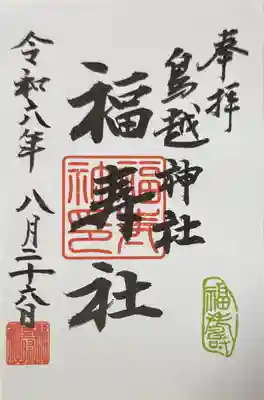 奉拝
鳥越神社
福寿社
令和六年 八月二十六日
福寿